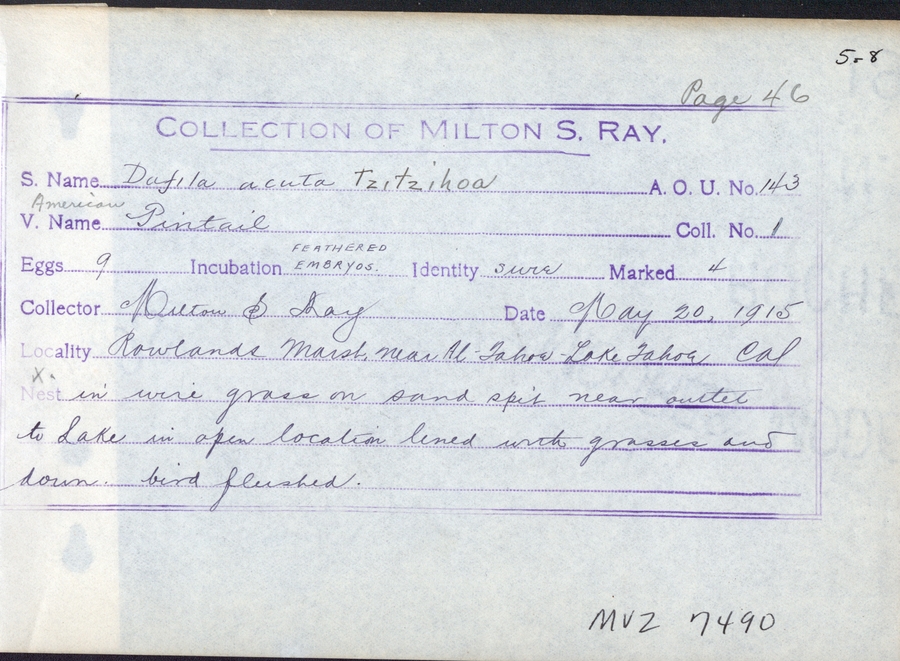 5-8
Page 46
COLLECTION OF MILTON S. RAY.
S. Name Dafila acuta tzitzihoa A. O. U. No. 143
American
V. Name Pintail Coll. No. 1
Eggs 9 Incubation FEATHERED EMBRYOS. Identity sure Marked 4
Collector Milton S Ray Date May 20, 1915
Locality Rowlands Marsh, near Al-Tahoe Lake Tahoe Cal
X.
Nest in wire grass on sand spit near outlet
to Lake in open location lined with grasses and
down. bird flushed.
MVZ 7490